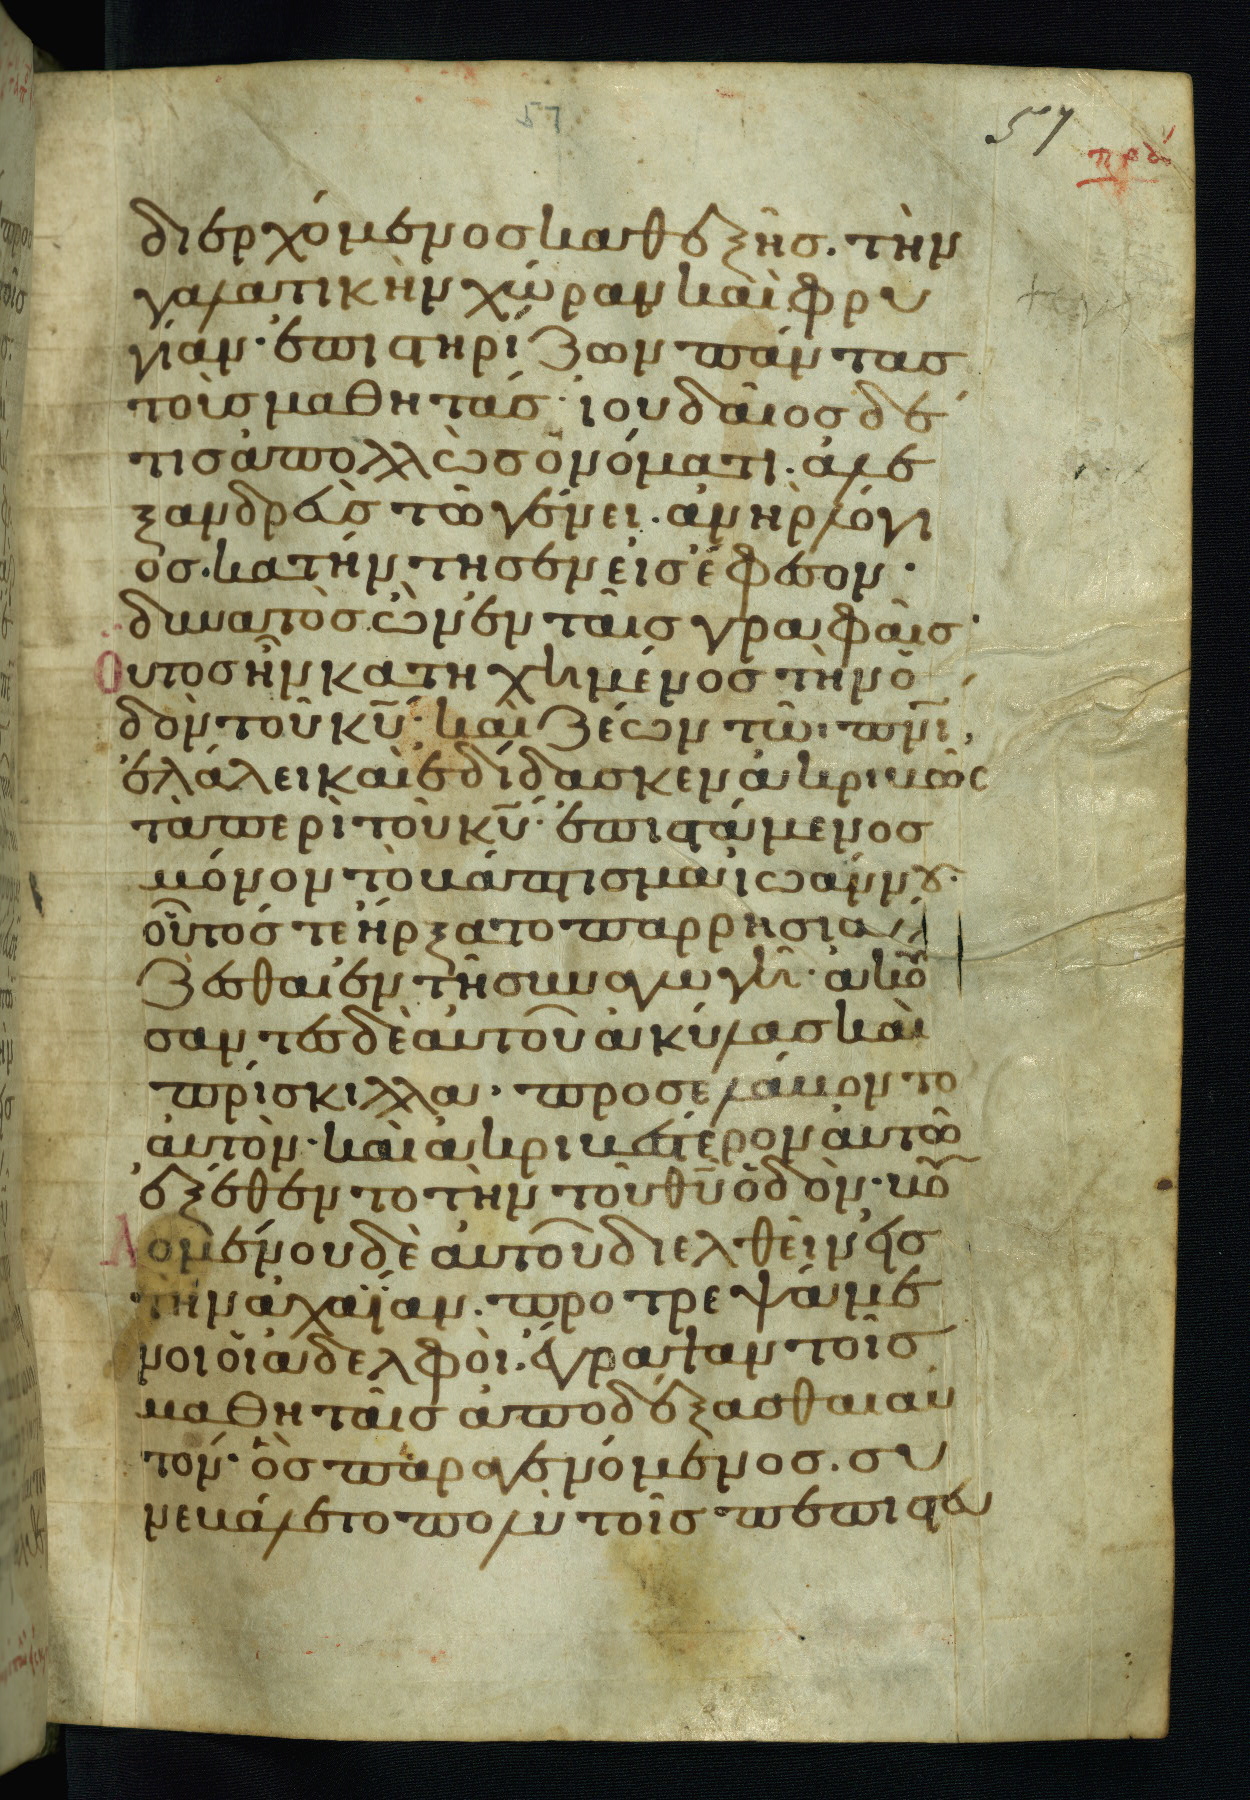 57
57
πρά
διερχόμενος καθεξῆς. τὴν
γαλατικὴν χώραν καὶ φρυ
γίαν· ἐπιστηρίζων πάντας
τοὺς μαθητάς· ἰουδαῖος δέ
τις ἀπολλὼς ὀνόματι. ἀλε
ξανδρεὺς τῶ γένει. ἀνὴρ λόγι
ος. κατήντησεν εἰς ἔφεσον·
δυνατὸς ὢν ἐν ταῖς γραφαῖς·
Οὗτος ἦν κατηχημένος τὴν ὁ
δὸν τοῦ κ̅υ̅· καὶ ζέων τῶι π̅ν̅ι̅,
ἐλάλει καὶ ἐδίδασκεν ἀκριβῶς
τὰ περὶ τοῦ κ̅υ̅· ἐπιστάμενος
μόνον τὸ βάπτισμα ἰωάννου·
οὗτός τε ἤρξατο παρρησιά
ζεσθαι ἐν τῆ συναγωγῆ· ἀκού
σαντες δὲ αὐτοῦ ἀκύλας καὶ
πρίσκιλλα· προσελάβοντο
αὐτὸν· καὶ ἀκριβέστερον αὐτῶ
ἐξέθεντο τὴν τοῦ θ̅υ̅ ὁδὸν· βου
Λομένου δὲ αὐτοῦ διελθεῖν εἰς
τὴν ἀχαΐαν. προτρεψάμε
νοι οἱ ἀδελφοὶ· ἔγραψαν τοῖς
μαθηταῖς ἀποδέξασθαι αὐ
τόν· ὃς παραγενόμενος. συ
νεβάλετο πολὺ τοῖς πεπιστευ